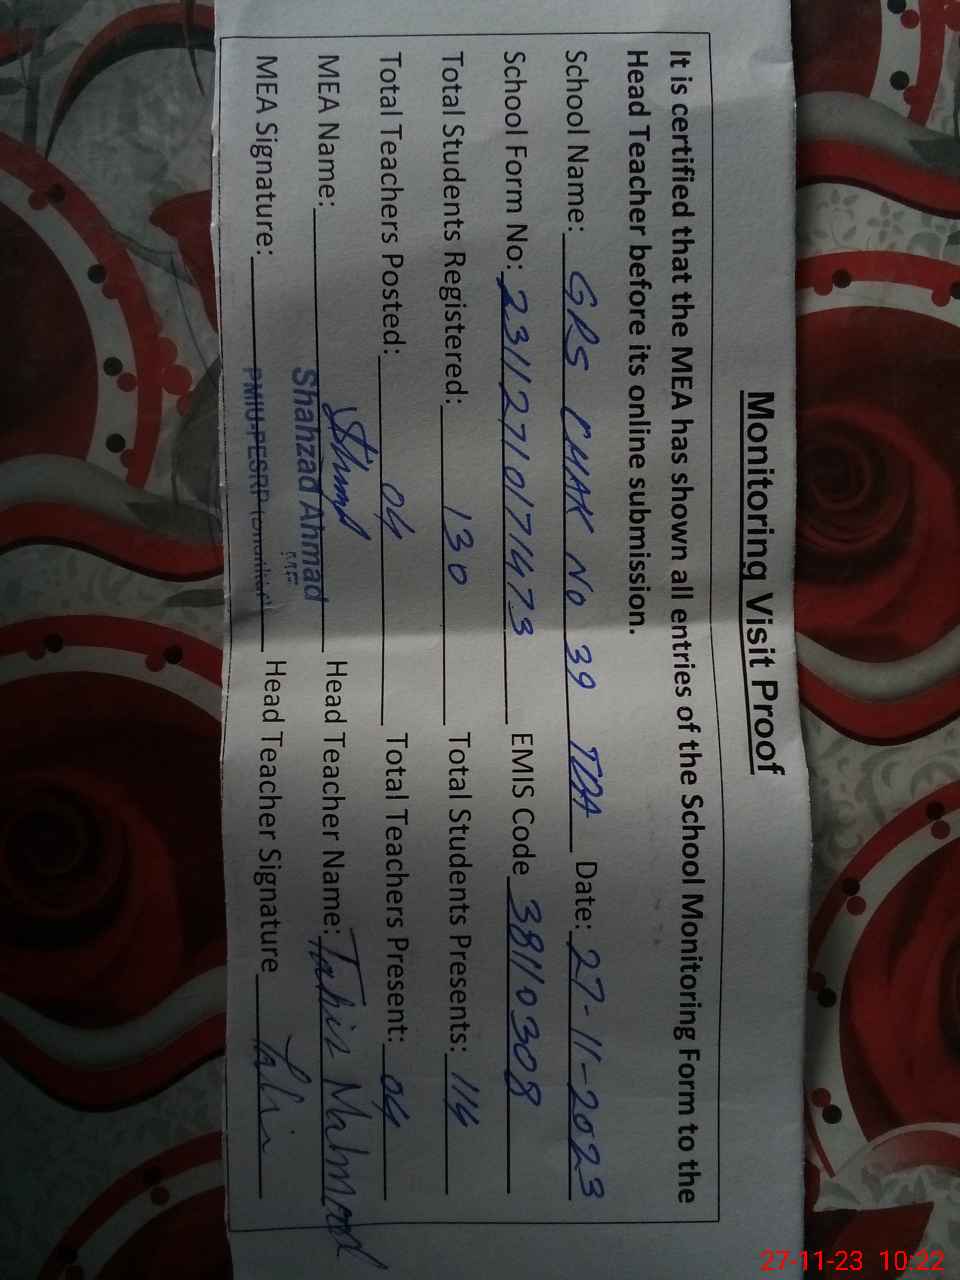 Monitoring Visit Proof
It is certified that the MEA has shown all entries of the School Monitoring Form to the
Head Teacher before its online submission.
School Name: GRS CHAK No 39 TDA Date: 27-11-2023
School Form No: 23112710171473 EMIS Code 38110308
Total Students Registered: 130 Total Students Presents: 114
Total Teachers Posted: 04 Total Teachers Present: 04
MEA Name: Head Teacher Name: Tahir Mahmood
Shahzad Ahmad
MEA Signature: Head Teacher Signature Tahir
PMIU-PESRP
27-11-23 10:22